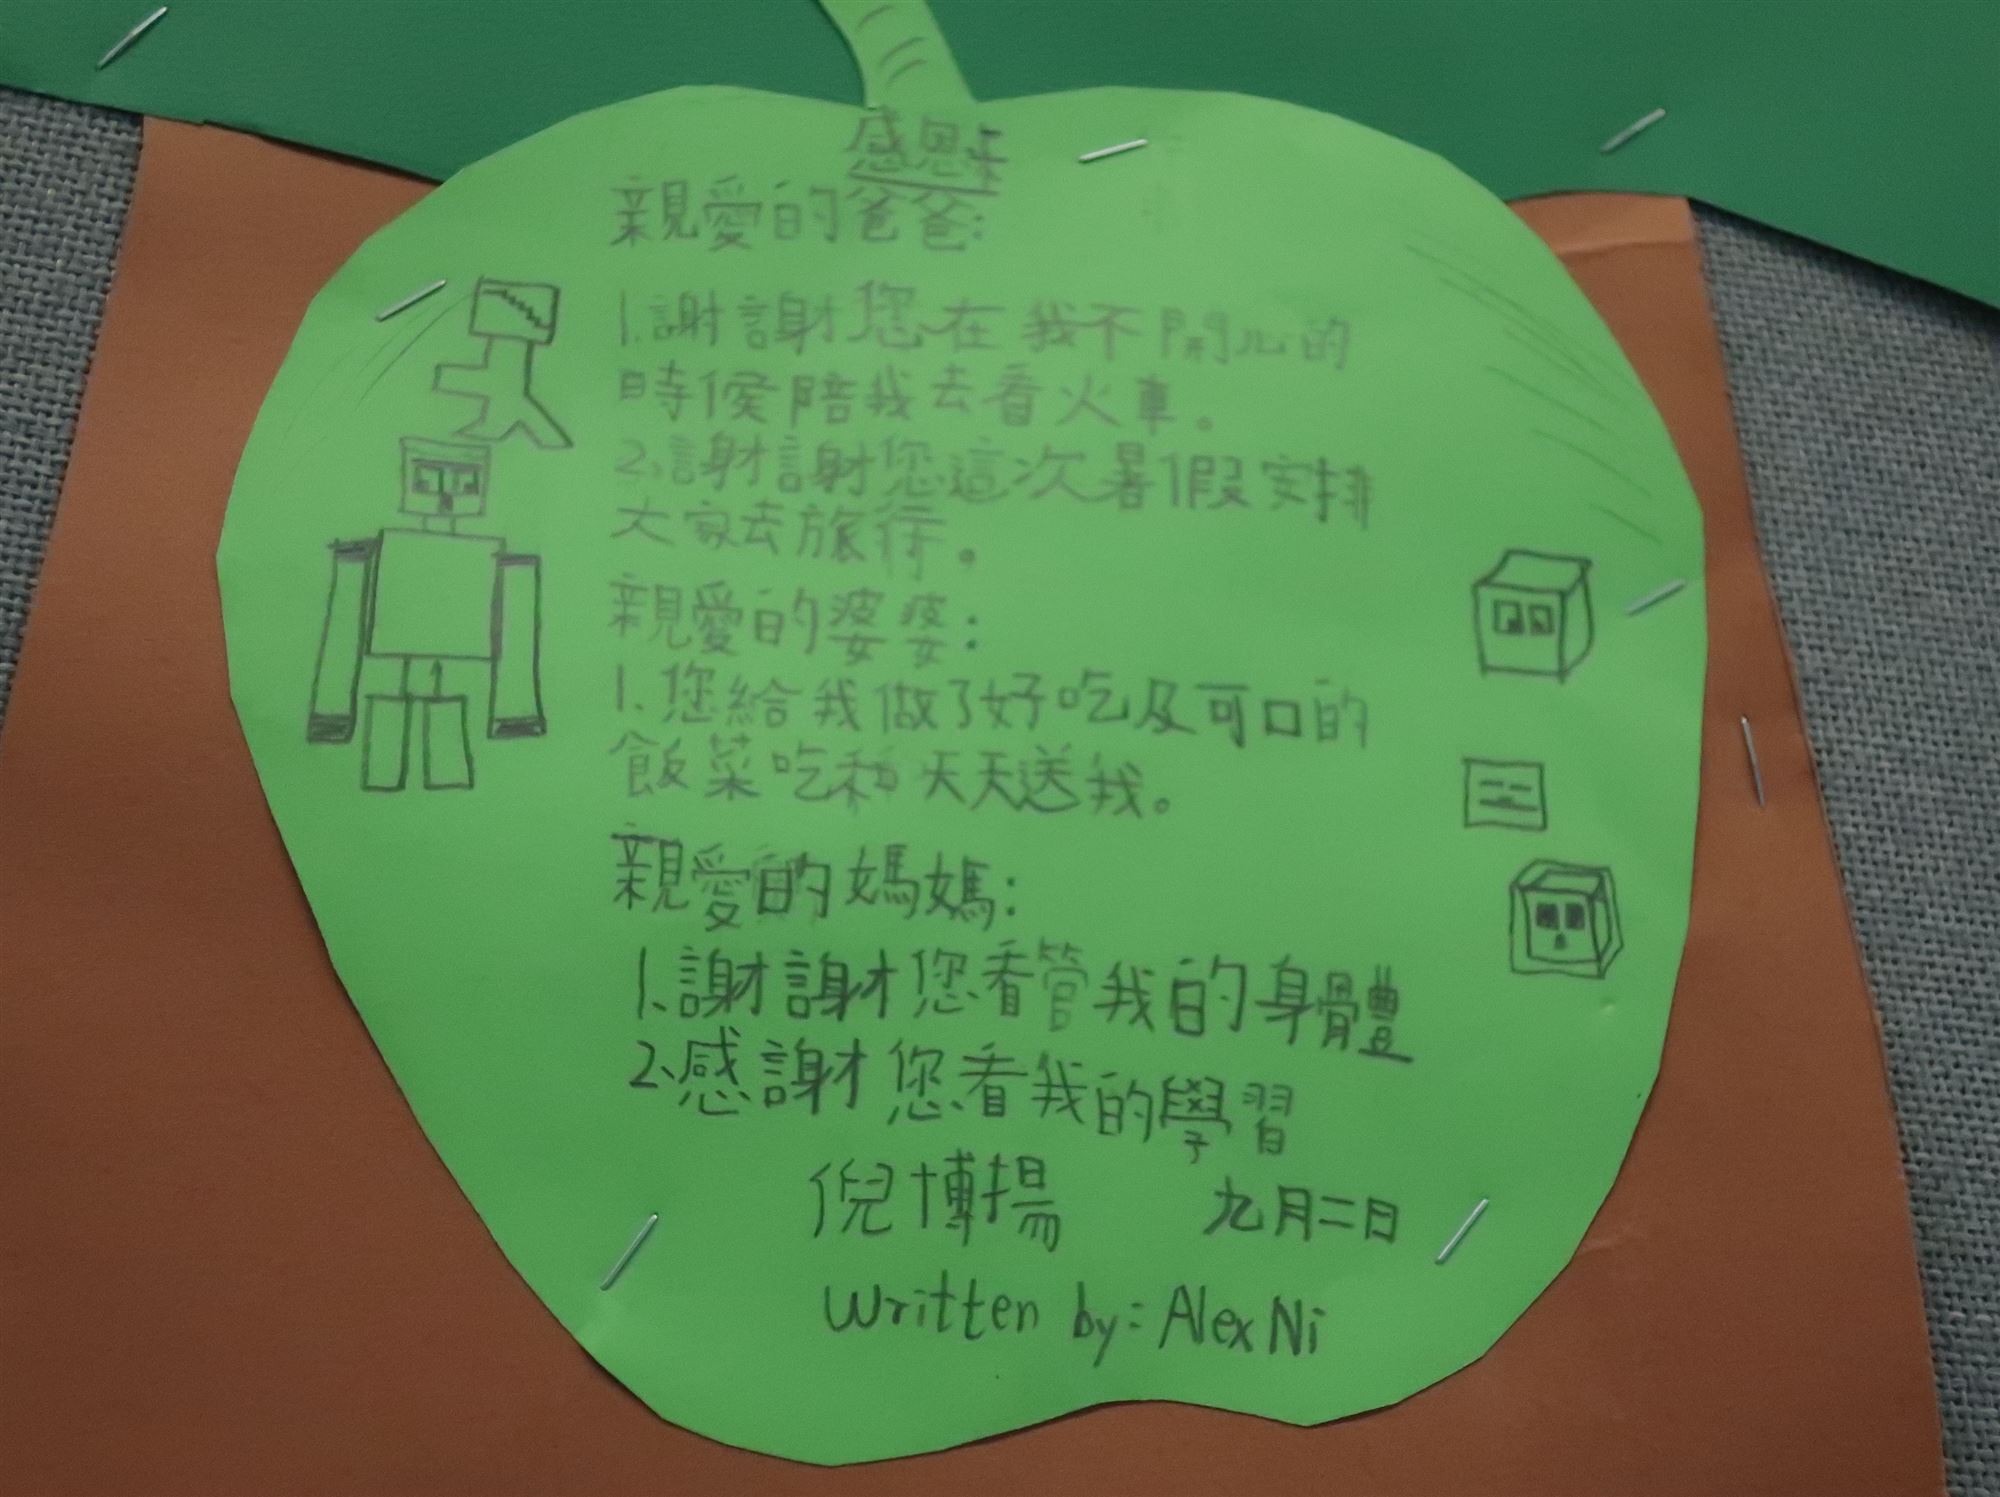 感恩卡
親愛的爸爸:
1.謝謝您在我不開心的
時候陪我去看火車。
2.謝謝您這次暑假安排
大家去旅行。
親愛的婆婆:
1.您給我做了好吃及可口的
飯菜吃和天天送我。
親愛的媽媽:
1.謝謝您看管我的身體
2.感謝您看我的學習
倪博揚 九月二日
Written by: Alex Ni